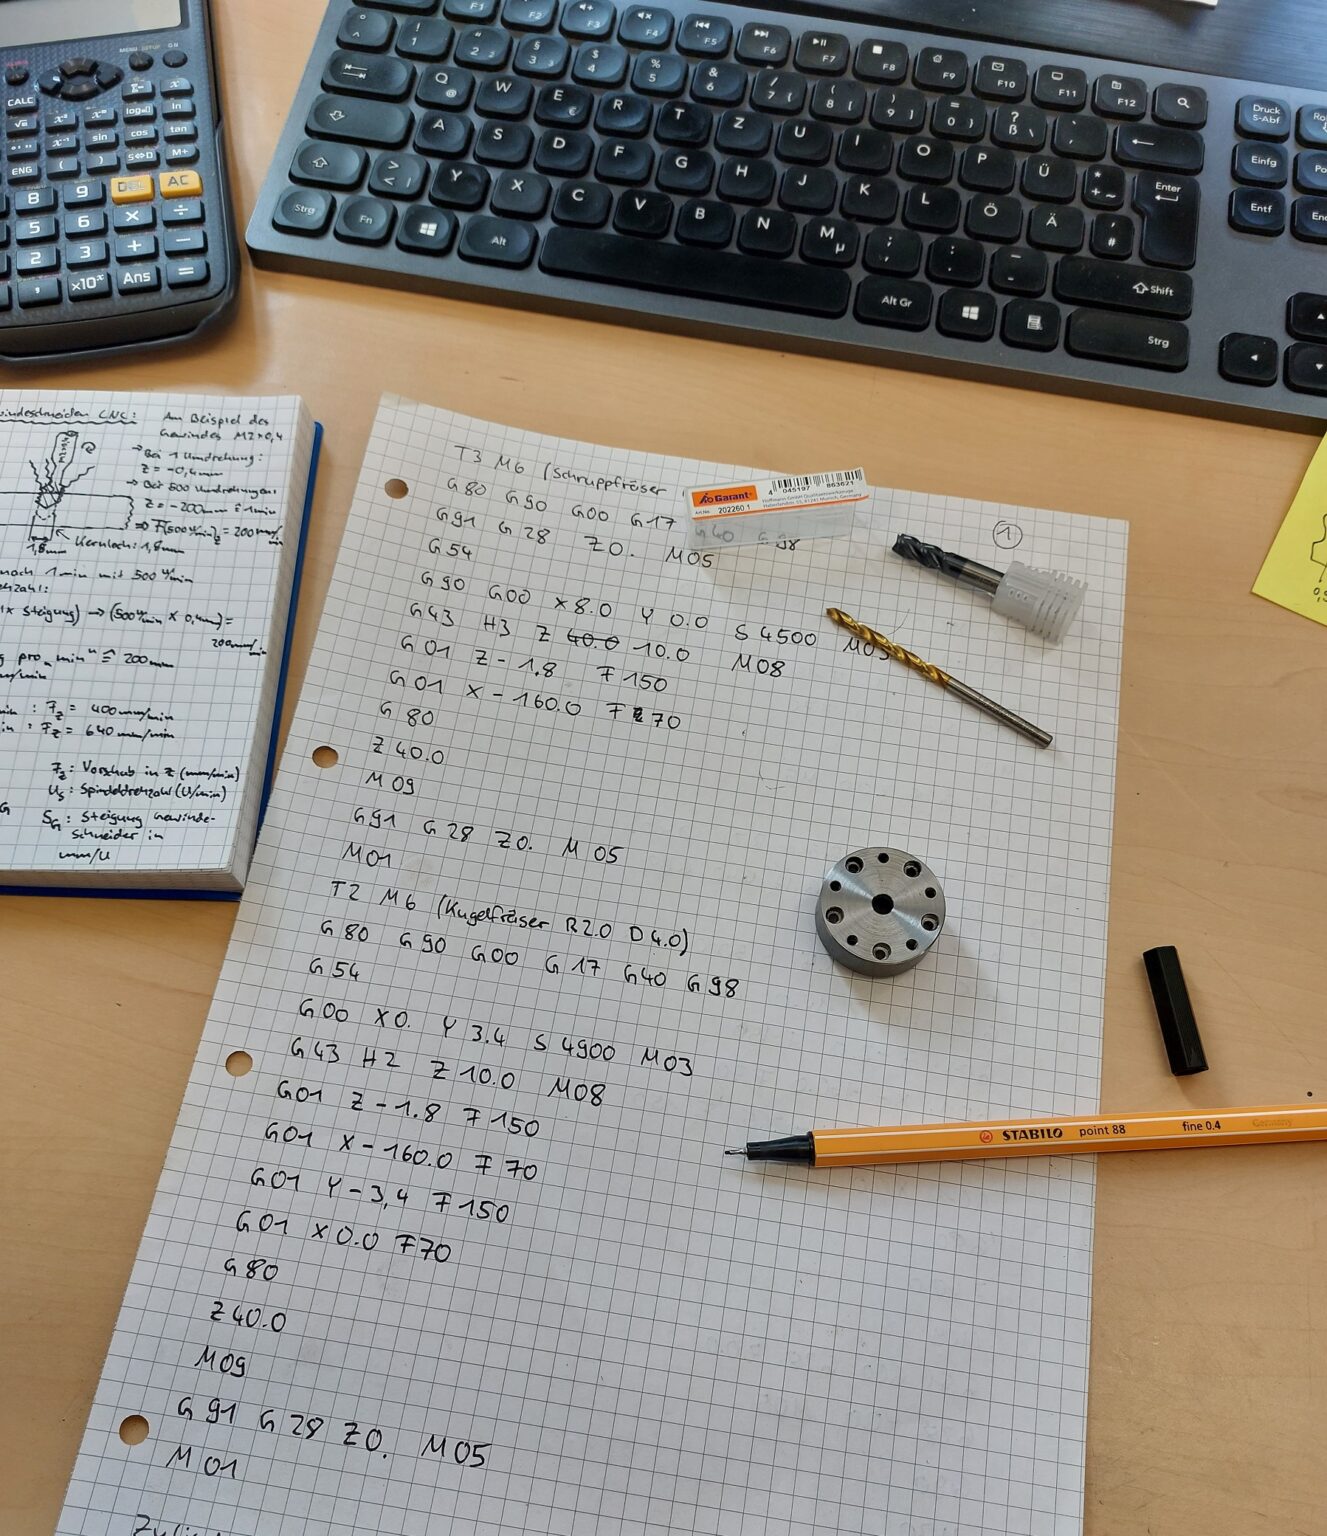 T3 M6 (Schruppfräser
G80 G90 G00 G17 G40 G98
G91 G28 Z0. M05
G54
G90 G00 X8.0 Y0.0 S4500 M03
G43 H3 Z 40.0 10.0 M08
G01 Z-1.8 F150
G01 X-160.0 F70
G80
Z40.0
M09
G91 G28 Z0. M05
M01
T2 M6 (Kugelfräser R2.0 D4.0)
G80 G90 G00 G17 G40 G98
G54
G00 X0. Y3.4 S4900 M03
G43 H2 Z10.0 M08
G01 Z-1.8 F150
G01 X-160.0 F70
G01 Y-3,4 F150
G01 X0.0 F70
G80
Z40.0
M09
G91 G28 Z0. M05
M01
1
Garant
4 045197 863621
Art.No. 202260 1
Hoffmann GmbH Qualitätswerkzeuge
Haberlandstr. 55, 81241 Munich, Germany
STABILO point 88 fine 0.4 Germany
CNC:
Am Beispiel des
Gewindes M2x0,4
→ Bei 1 Umdrehung:
Z = -0,4mm
→ Bei 500 Umdrehungen:
Z = -200mm ≙ 1min
= 200mm/min
1,6mm
Kernloch: 1,6mm
nach 1min mit 500 U/min
x Steigung) → (500 U/min x 0,4mm) =
200mm/min
pro "min" ≙ 200mm
: Fz = 400mm/min
: Fz = 640mm/min
Fz: Vorschub in Z (mm/min)
Us: Spindeldrehzahl (U/min)
SG: Steigung Gewinde-
schneider in
mm/U
MENU SETUP ON
CALC
x
ln
sin cos tan
ENG ( ) S⇔D M+
8 9 DEL AC
5 6 × ÷
2 3 + −
, ×10ˣ Ans =
F1 F2 F3 F4 F5 F6 F7 F8 F9 F10 F11 F12
Druck
S-Abf
° ^ ! 1 " 2 § 3 $ 4 % 5 & 6 / 7 { ( 8 [ ) 9 ] = 0 } ? ß \
Einfg
Q @ W E € R T Z U I O P Ü * + ~ Enter
Entf
A S D F G H J K L Ö Ä ' #
> < | Y X C V B N M µ ; , : . _ - Shift
Strg Fn Alt Alt Gr Strg